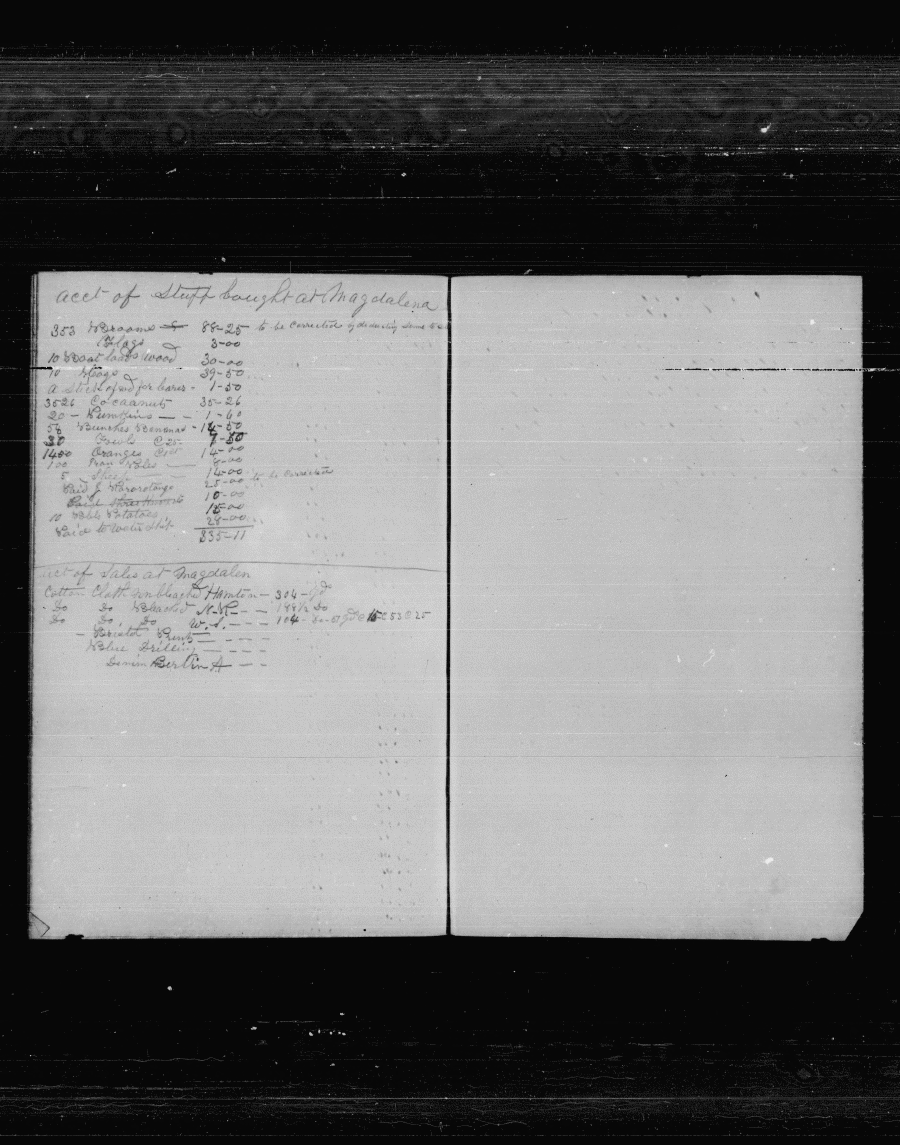 acct of Stuff bought at Magdalena
353 Brooms 88-25 to be corrected by deducting some
Flags 3-00
10 Boat loads Wood 30-00
10 Hogs 39-50
a stick of wd for bares - 1-50
3526 Cocaanuts 35-26
20 - Pumkins — - 1-60
56 Bunches Bananas - 14-50
30 Fowls C 25- 7-50
1400 Oranges 14-00
100 8-00
5 Sheep 14-00
Paid J 25-00 to be corrected
Paid 10-00
10 Bbls Potatoes 15-00
Paid to water Ship 28-00
335-11
acct of Sales at Magdalen
Cotton Cloth unbleached Hamton - 304 - yd
Do Do Bleached N.H. - - 188½ Do
Do Do Do W.S. - - - 104 - Do
- Bristol Print — - - -
Blue Drilling — - - -
Denim Berlin A — - -